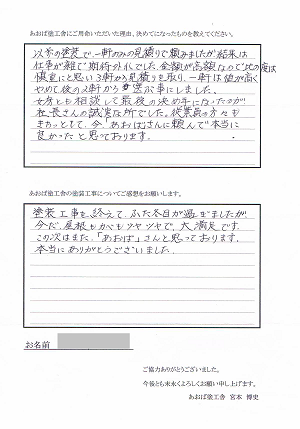 あおば塗工舎にご用命いただいた理由、決めてになったものを教えてください。
以前の塗装で、一軒のみの見積りで頼みましたが結果は
仕事が雑で期待外れでした。金額が高額なので此の度は
慎重にと思い3軒から見積りを取り、一軒は値が高く
やめて後の2軒から選ぶ事にしました。
女房とも相談して最後の決め手になったのが
社長さんの誠実な所でした。従業員の方々も
まきっとして、今、「あおば」さんに頼んで本当に
良かったと思っております。
あおば塗工舎の塗装工事についてご感想をお願いします。
塗装工事を終えて、ふた冬目が過ぎましたが
今だ、屋根もカベもツヤツヤで、大満足です。
この次はまた、「あおば」さんと思っております。
本当にありがとうございました。
お名前
ご協力ありがとうございました。
今後とも末永くよろしくお願い申し上げます。
あおば塗工舎 宮本 博史